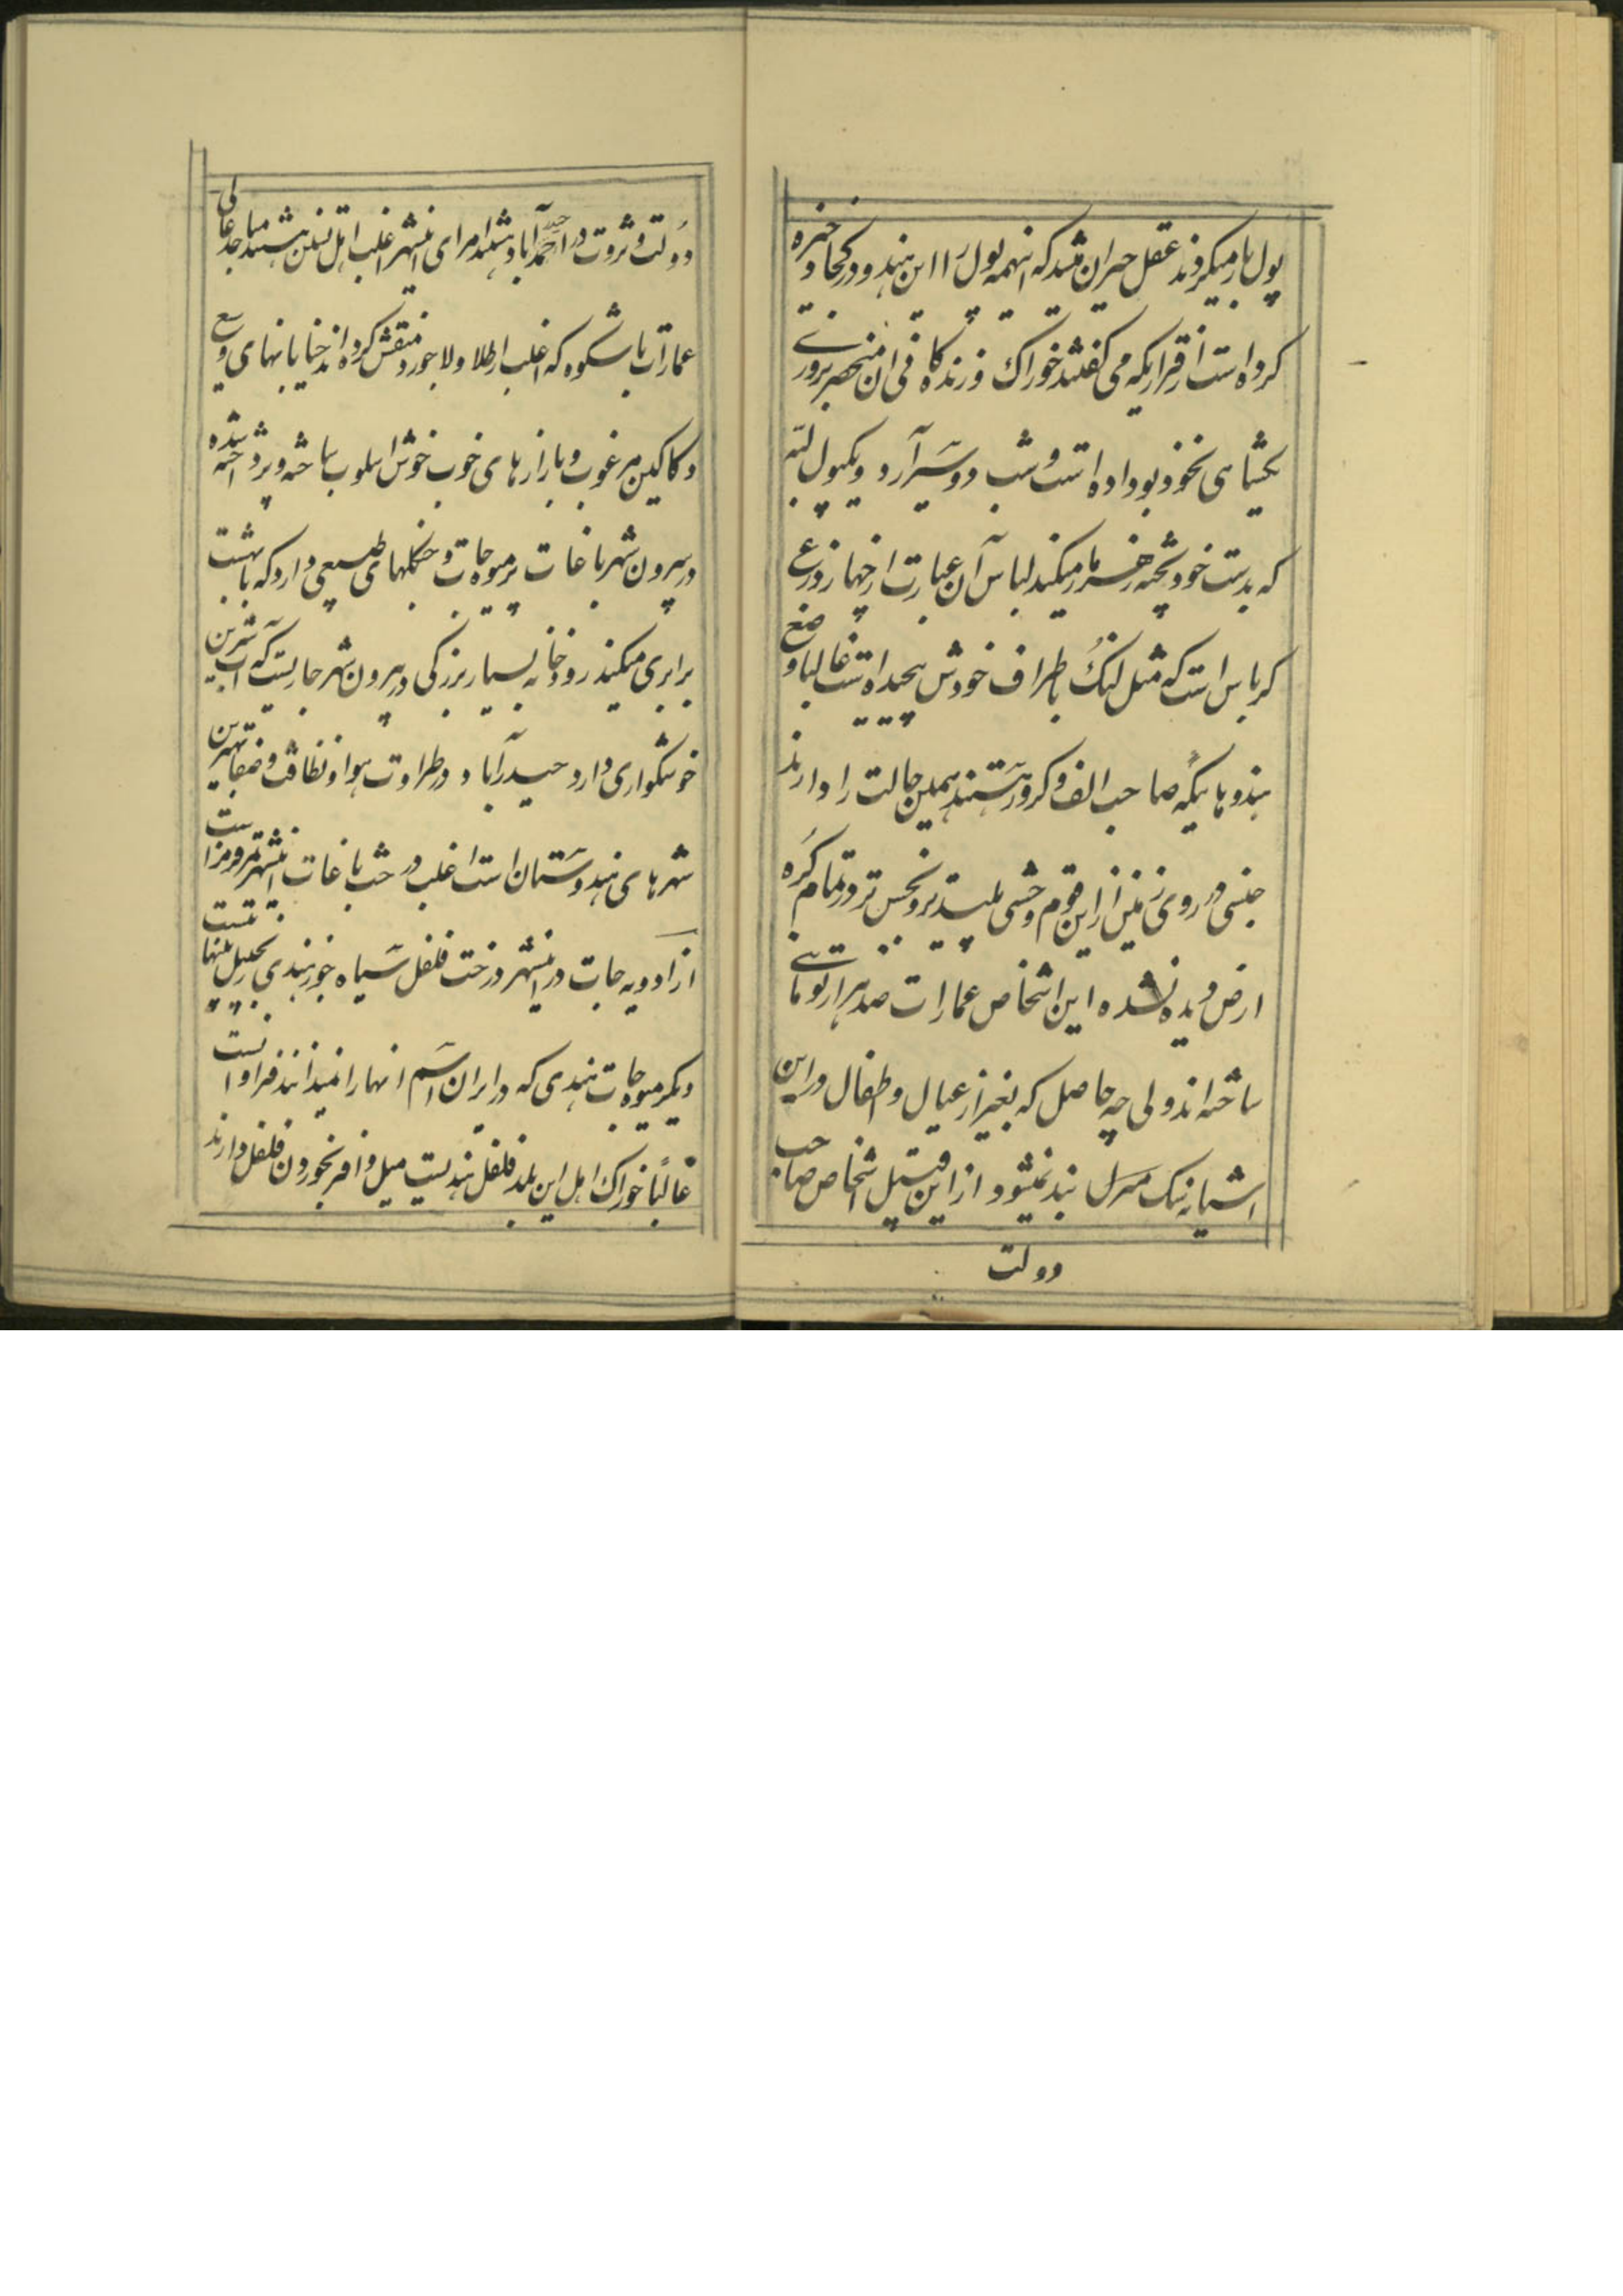 پول بار میکردند عقل حیران میشد که اینهمه پول را این هندو در کجا ذخیره
کرده است از قراریکه می گفتند خوراک و زندهگانی ان منحصر بروزی
یکشاهی نخود بو داده است و شب دو سیر آرد و یکپول لپه
که بدست خود پخته زهرمار میکند لباس آن عبارت از چهار ذرع
کرباس است که مثل لنگ باطراف خودش پیچیده است غالبا وضع
هندوهائیکه صاحب الف و کرور هستند همین حالت را دارند
جنسی در روی زمین از این قوم وحشی پلیدتر و نجس تر در تمام کره
ارض دیده نشده این اشخاص عمارات صد هزار تومانی
ساخته اند ولی چه حاصل که بغیر از عیال و اطفال در این
اشیانه نیک منزل بند نمیشود از این قبیل اشخاص صاحب
دولت
دولت و ثروت در احمدآباد هستند امرای اینشهر اغلب اهل تسنن هستند مساجد عالی
عمارات با شکوه که اغلب از طلا و لاجورد منقش کرده اند خیابانهای وسیع
دکاکین مرغوب و بازارهای خوب خوش اسلوب ساخته و پرداخته شده
در بیرون شهر باغات پر میوه جات و جنگلهای طبیعی دارد که با بهشت
برابری میکند رودخانه بسیار بزرگی در بیرون شهر جاریست که آب شیرین
خوشگواری دارد حیدرآباد در طراوت هوا و نظافت و صفا بهترین
شهرهای هندوستان است اغلب درخت باغات اینشهر تمر و موز است
از ادویه جات در اینشهر درخت فلفل سیاه جوز هندی
دیگر میوه جات هندی که در ایران اسم انها را نمیدانند فراوانست
غالبًا خوراک اهل این بلد فلفل هندیست میل وافر بخوردن فلفل دارند